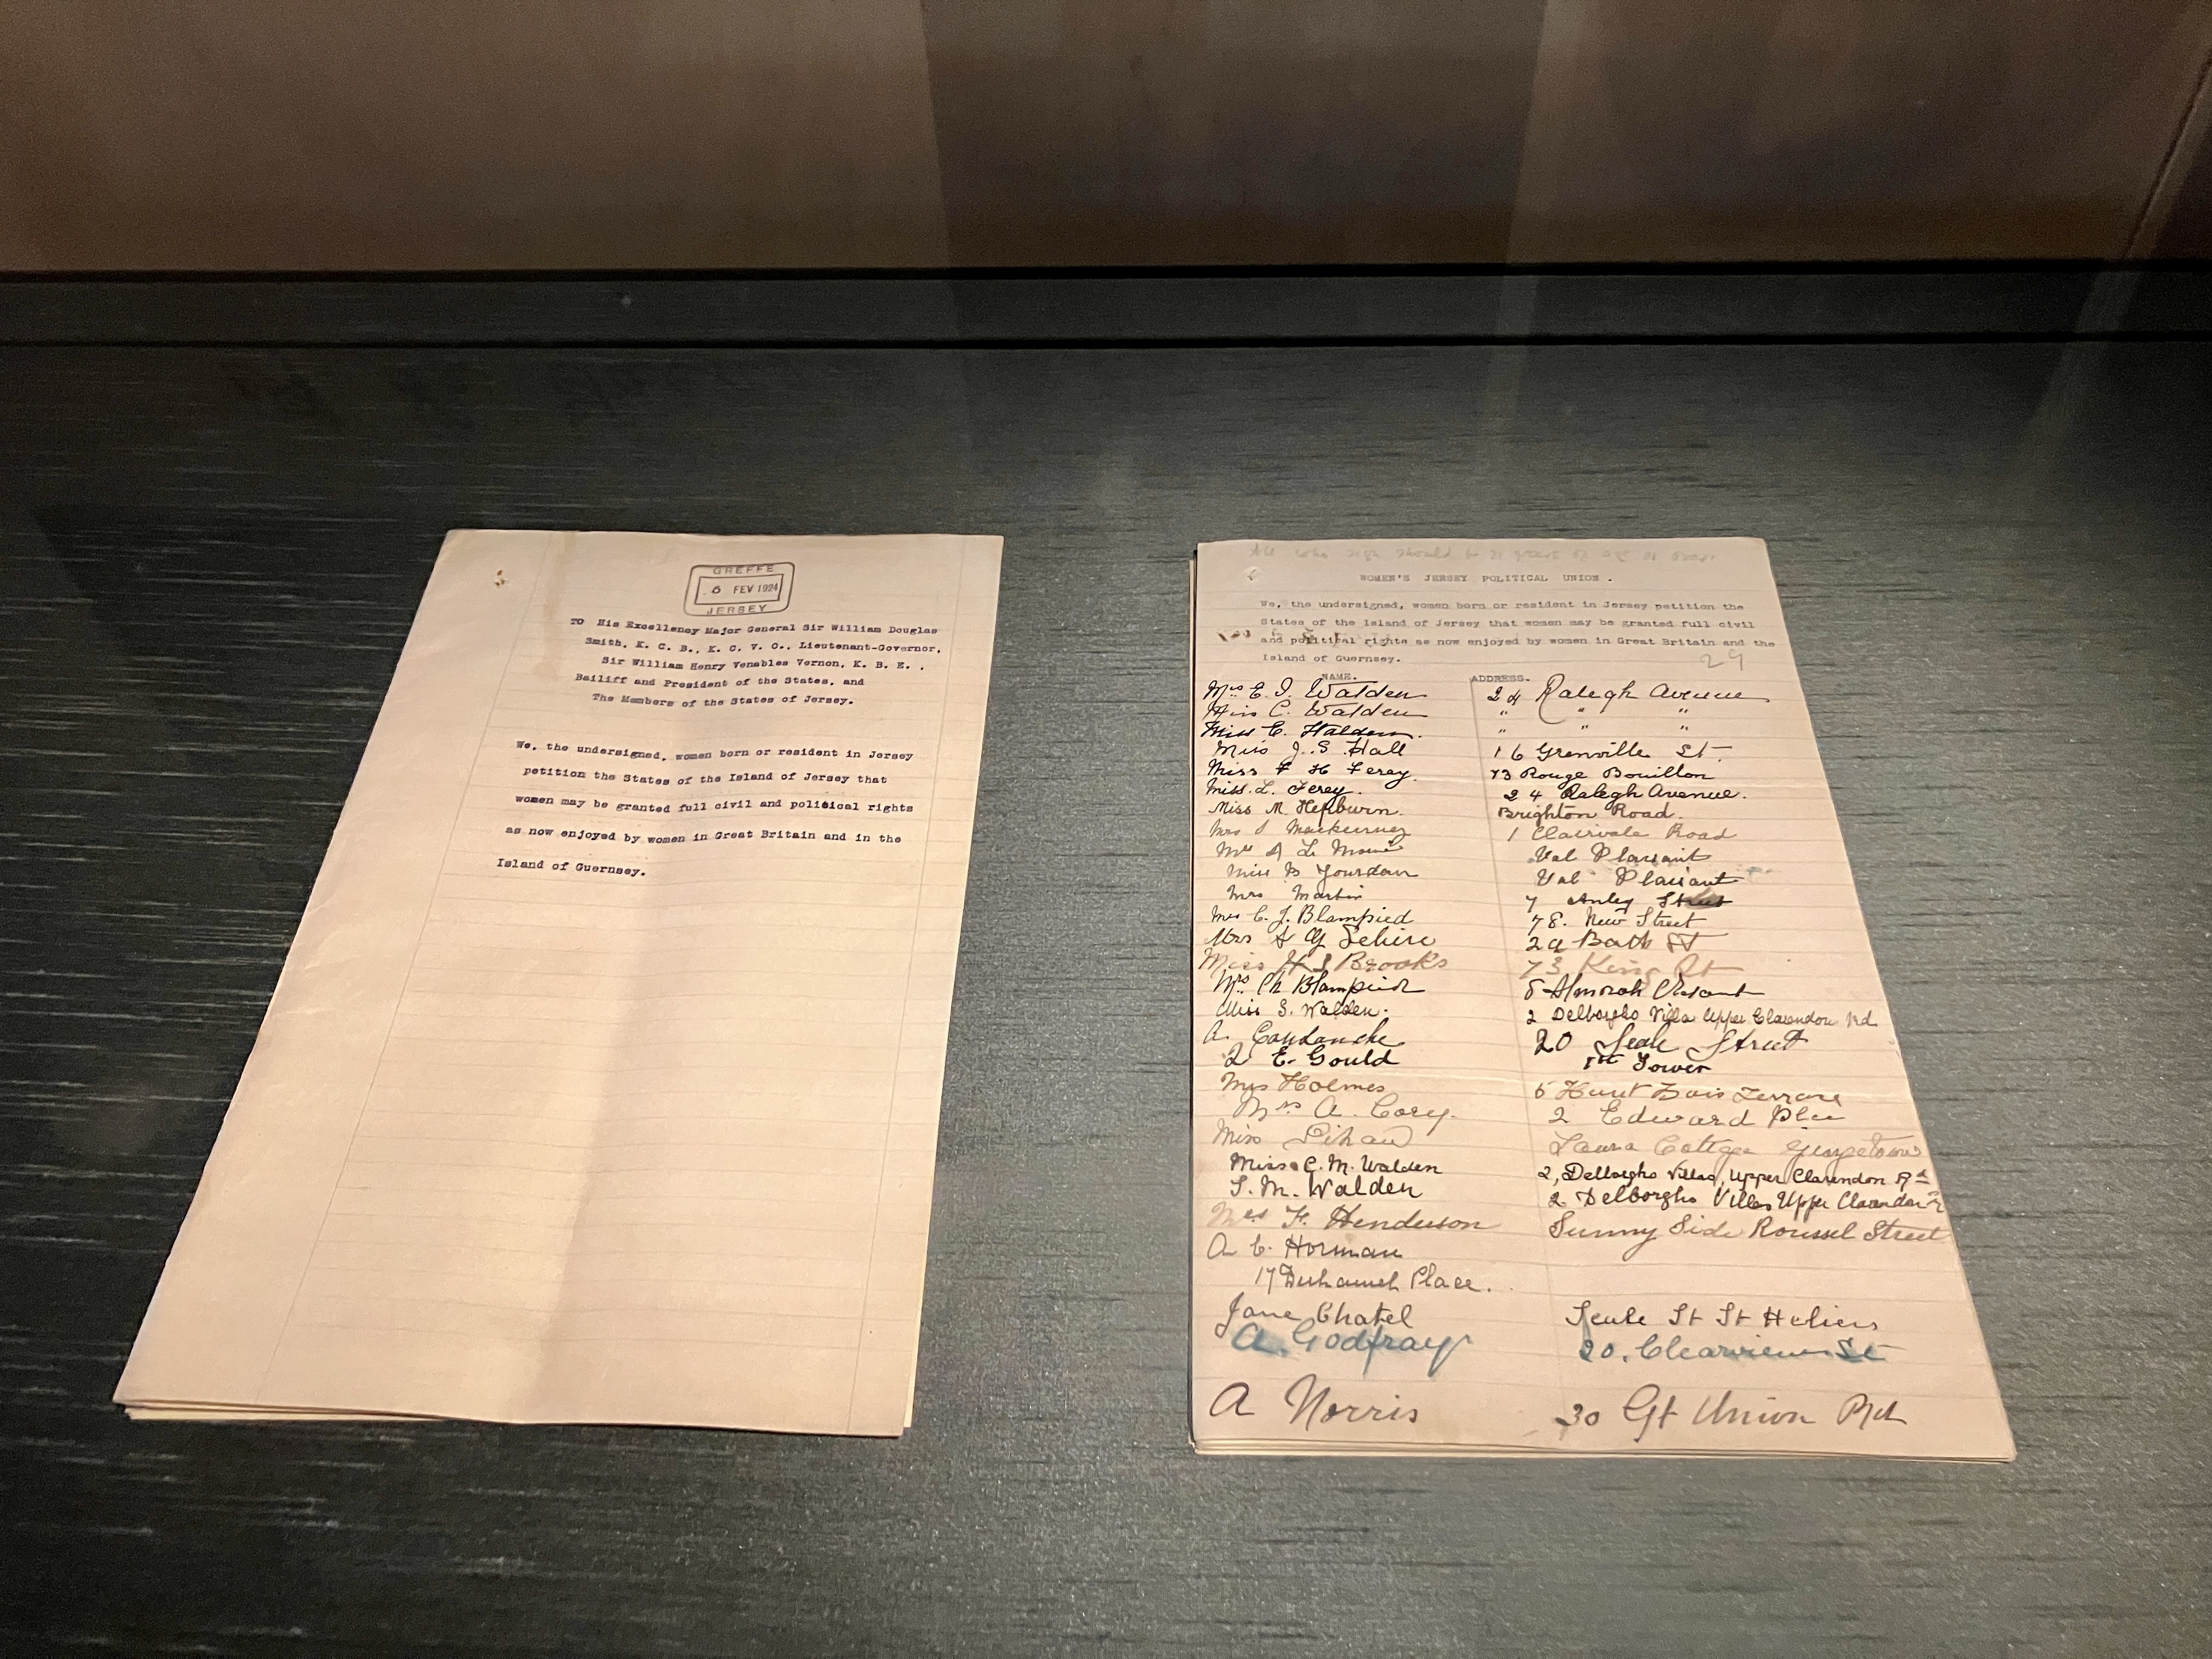 GREFFE
6 FEV 1924
JERSEY
TO His Excellency Major General Sir William Douglas
Smith, K. C. B., K. C. V. O., Lieutenant-Governor,
Sir William Henry Venables Vernon, K. B. E. ,
Bailiff and President of the States, and
The Members of the States of Jersey.
We, the undersigned, women born or resident in Jersey
petition the States of the Island of Jersey that
women may be granted full civil and political rights
as now enjoyed by women in Great Britain and in the
Island of Guernsey.
All who sign should be 21 years of age or over.
WOMEN'S JERSEY POLITICAL UNION .
We, the undersigned, women born or resident in Jersey petition the
States of the Island of Jersey that women may be granted full civil
and political rights as now enjoyed by women in Great Britain and the
Island of Guernsey.
29
NAME. ADDRESS.
Mrs E. J. Walden 24 Ralegh Avenue
Miss C. Walden " " "
Miss E. Walden. " "
Miss J. S Hall 16 Grenville St.
Miss F H Ferey. 73 Rouge Bouillon
Miss. L. Ferey. 24 Ralegh Avenue.
Miss M. Hepburn. Brighton Road.
Mrs 1 Clairvale Road
A Le Val Plaisant
Miss B Jourdan Val Plaisant
Mrs Martin 7 Anley Street
Mrs C. J. Blampied 78. New Street
Mrs 29 Bath St
Miss H S Brooks 73 King St
Mrs Ch Blampied 5 Almorah Cresant
Miss S. Walden. 2 Delborgho Villa Upper Clarendon Rd
A. Coutanche 20 Seale Street
E. Gould 1st Tower
Mrs Holmes 5 Haut Bois Terrace
Mrs A. Cory. 2 Edward Place
Miss Lihou Laura Cottage Georgetown
Miss C. M. Walden 2, Delborgho Villas, Upper Clarendon Rd
S. M. Walden 2 Delborgho Villas Upper Clarendon Rd
Mrs F. Henderson Sunny Side Roussel Street
A C. Horman
17 Duhamel Place.
Jane Chatel Seale St St Heliers
A. Godfray 20, Clearview St
A Norris 30 Gt Union Rd